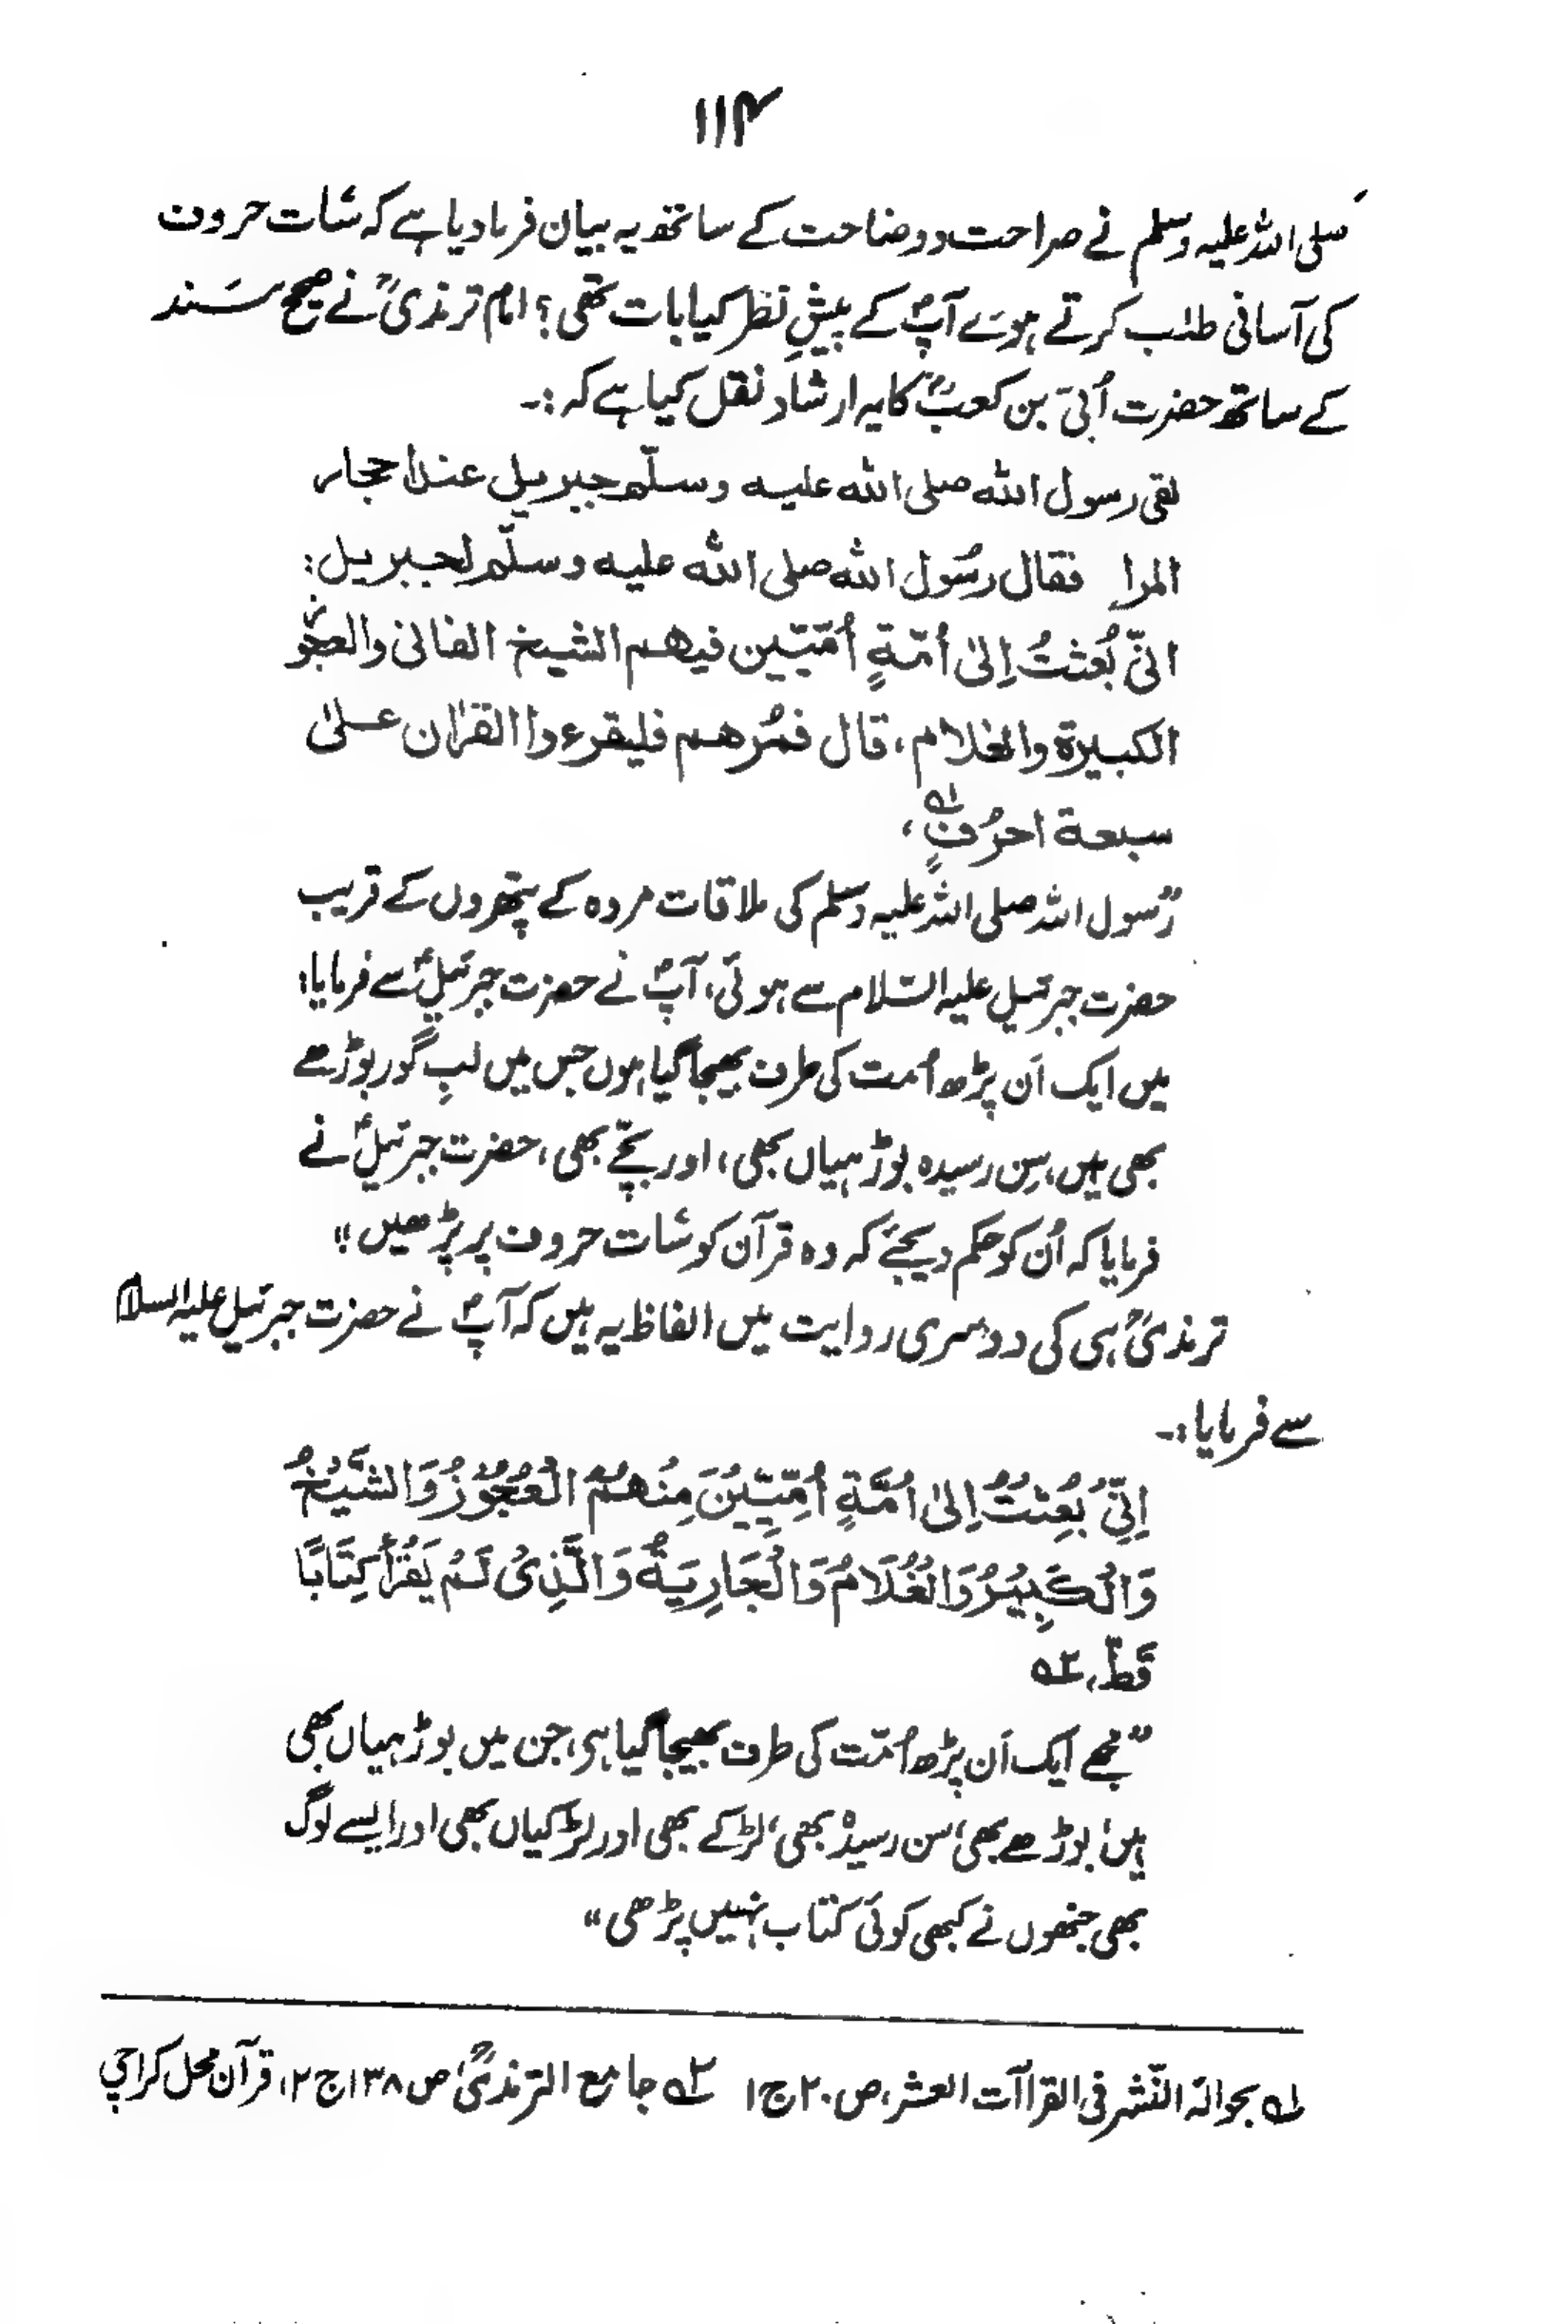 ۱۱۴
صلی اللہ علیہ وسلم نے صراحت و وضاحت کے ساتھ یہ بیان فرما دیا ہے کہ سات حروف
کی آسانی طلب کرتے ہوئے آپؐ کے پیشِ نظر کیا بات تھی؟ امام ترمذیؒ نے صحیح سَند
کے ساتھ حضرت اُبیّ بن کعبؓ کا یہ ارشاد نقل کیا ہے کہ :۔
لقی رسول اللہ صلی اللہ علیہ وسلّم جبریل عند احجار
المرا فقال رسُول اللہ صلی اللہ علیہ وسلّم لجبریل:
انیّ بُعثتُ اِلیٰ اُمّةٍ اُمّیّین فیھم الشیخ الفانی والعجوز
الکبیرة والغلام، قال فمُرھم فلیقرءوا القرٰان علیٰ
سبعة احرُفٍ لہ،
"رسول اللہ صلی اللہ علیہ وسلم کی ملاقات مروہ کے پتھروں کے قریب
حضرت جبرئیل علیہ السّلام سے ہوئی، آپؐ نے حضرت جبرئیلؑ سے فرمایا:
میں ایک اَن پڑھ اُمت کی طرف بھیجا گیا ہوں جس میں لبِ گور بوڑھے
بھی ہیں، سِن رسیدہ بوڑھیاں بھی، اور بچّے بھی، حضرت جبرئیلؑ نے
فرمایا کہ اُن کو حکم دیجئے کہ وہ قرآن کو سات حروف پر پڑھیں"
ترمذیؒ ہی کی دوسری روایت میں الفاظ یہ ہیں کہ آپؐ نے حضرت جبرئیل علیہ السلام
سے فرمایا:۔
اِنِّیْ بُعِثْتُ اِلیٰ اُمَّةٍ اُمِّیِّیْنَ مِنْھُمُ الْعَجُوْزُ وَالشَّیْخُ
وَالْکَبِیْرُ وَالْغُلَامُ وَالْجَارِیَةُ وَالَّذِیْ لَمْ یَقْرَأْ کِتَابًا
قَطُّ، ۲ہ
"مجھے ایک اَن پڑھ اُمّت کی طرف بھیجا گیا ہی، جن میں بوڑھیاں بھی
ہیں، بوڑھے بھی، سن رسیدہ بھی، لڑکے بھی اور لڑکیاں بھی اور ایسے لوگ
بھی جنھوں نے کبھی کوئی کتاب نہیں پڑھی"
لہ بحوالۃ النّشر فی القراآت العشر، ص ۲۰ ج ۱ ۲ہ جامع الترمذیؒ ص ۱۳۸ ج ۲، قرآن محل کراچی